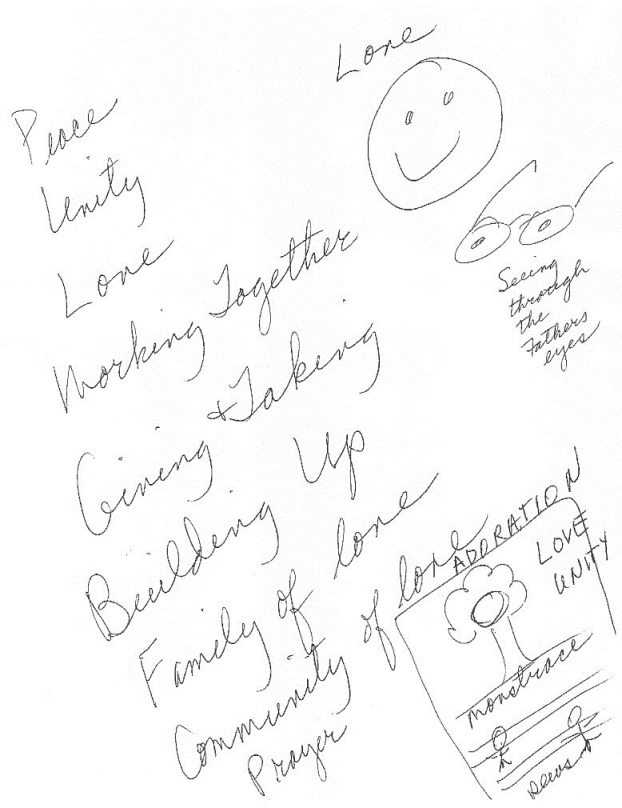 Love
Peace
Unity
Love
Working Together
Giving + Taking
Building Up
Family of love
Community of love
Prayer
Seeing
through
the
Fathers
eyes
ADORATION
LOVE
UNITY
monstrace
pews